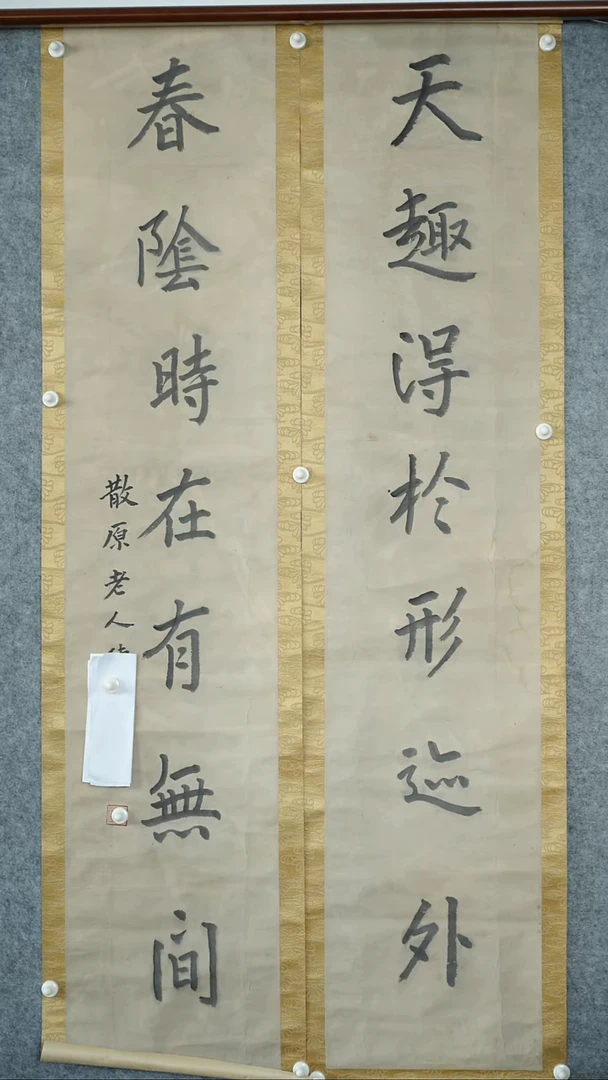 天趣得於形迹外
春陰時在有無間
散原老人